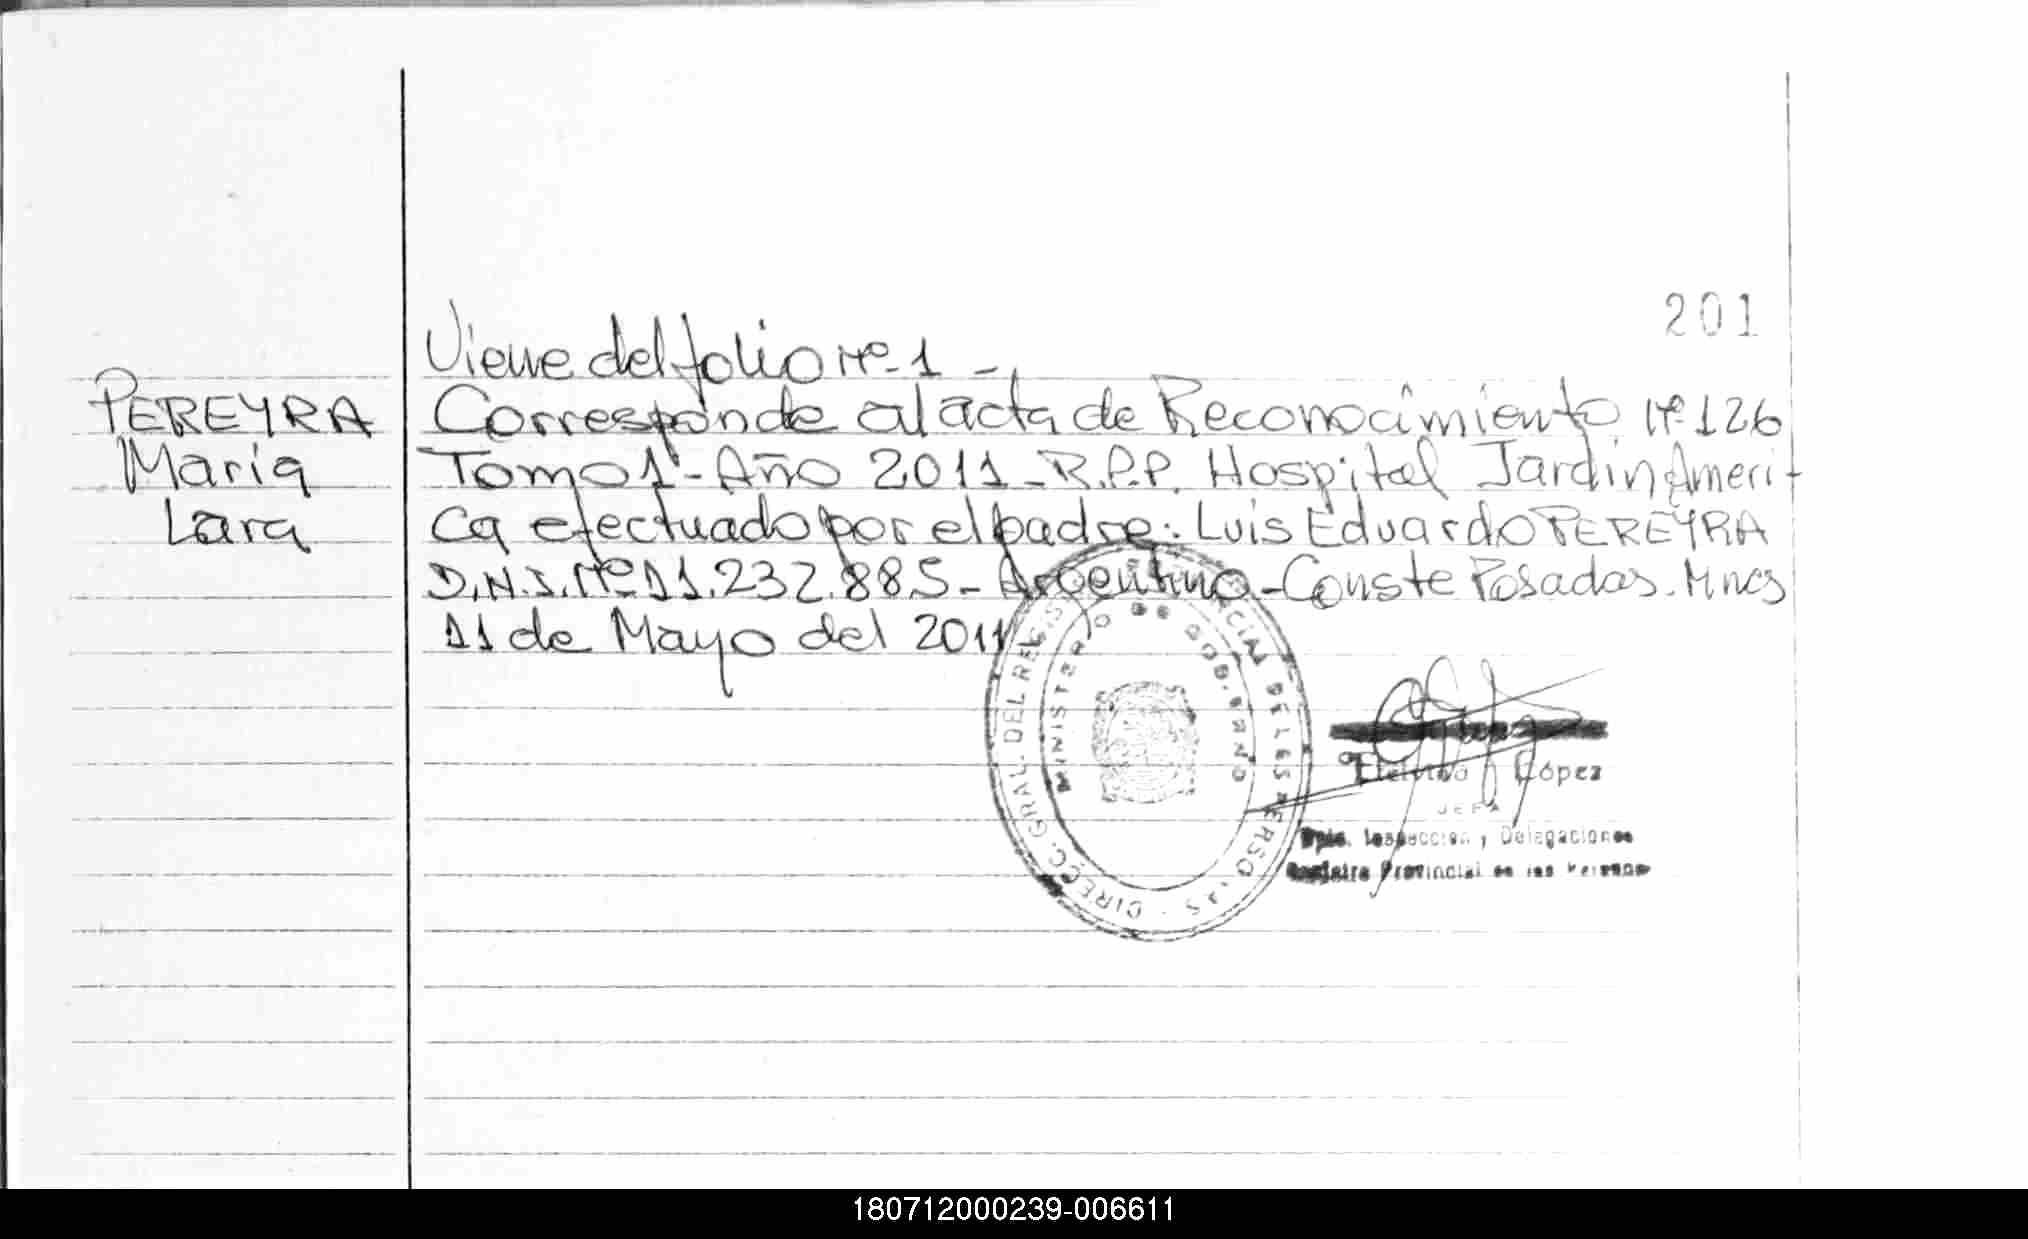 201
Viene del folio nº 1 -
PEREYRA
Maria
Lara
Corresponde al acta de Reconocimiento Nº 126
Tomo 1º - Año 2011 - R.P.P. Hospital Jardin Ameri-
ca efectuado por el padre: Luis Eduardo PEREYRA
D.N.I. Nº 11.232.885 - Argentino - Conste Posadas. Mnes
11 de Mayo del 2011
DIREC. GRAL. DEL REGIS PROVINCIAL DE LAS PERSONAS
MINISTERIO DE GOBIERNO
López
JEFA
Dpto. Inspección y Delegaciones
Registro Provincial de las Personas
180712000239-006611